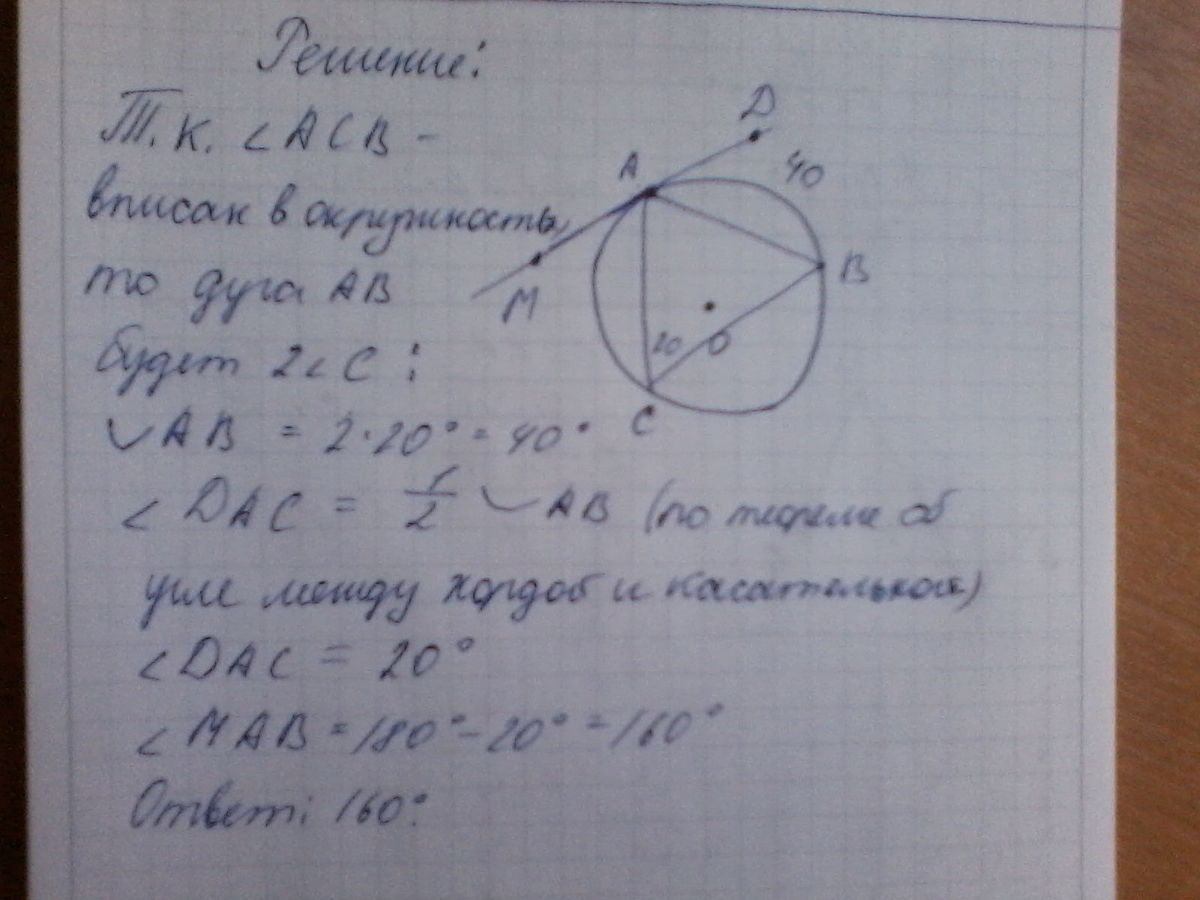 Решение:
Т.к. ∠ACB -
вписан в окружность,
то дуга AB
будет 2∠C:
◡AB = 2·20° = 40°
∠DAC = 1/2 ◡AB (по теореме об
угле между хордой и касательной)
∠DAC = 20°
∠MAB = 180° - 20° = 160°
Ответ: 160°.
D
A
40
B
M
20
O
C